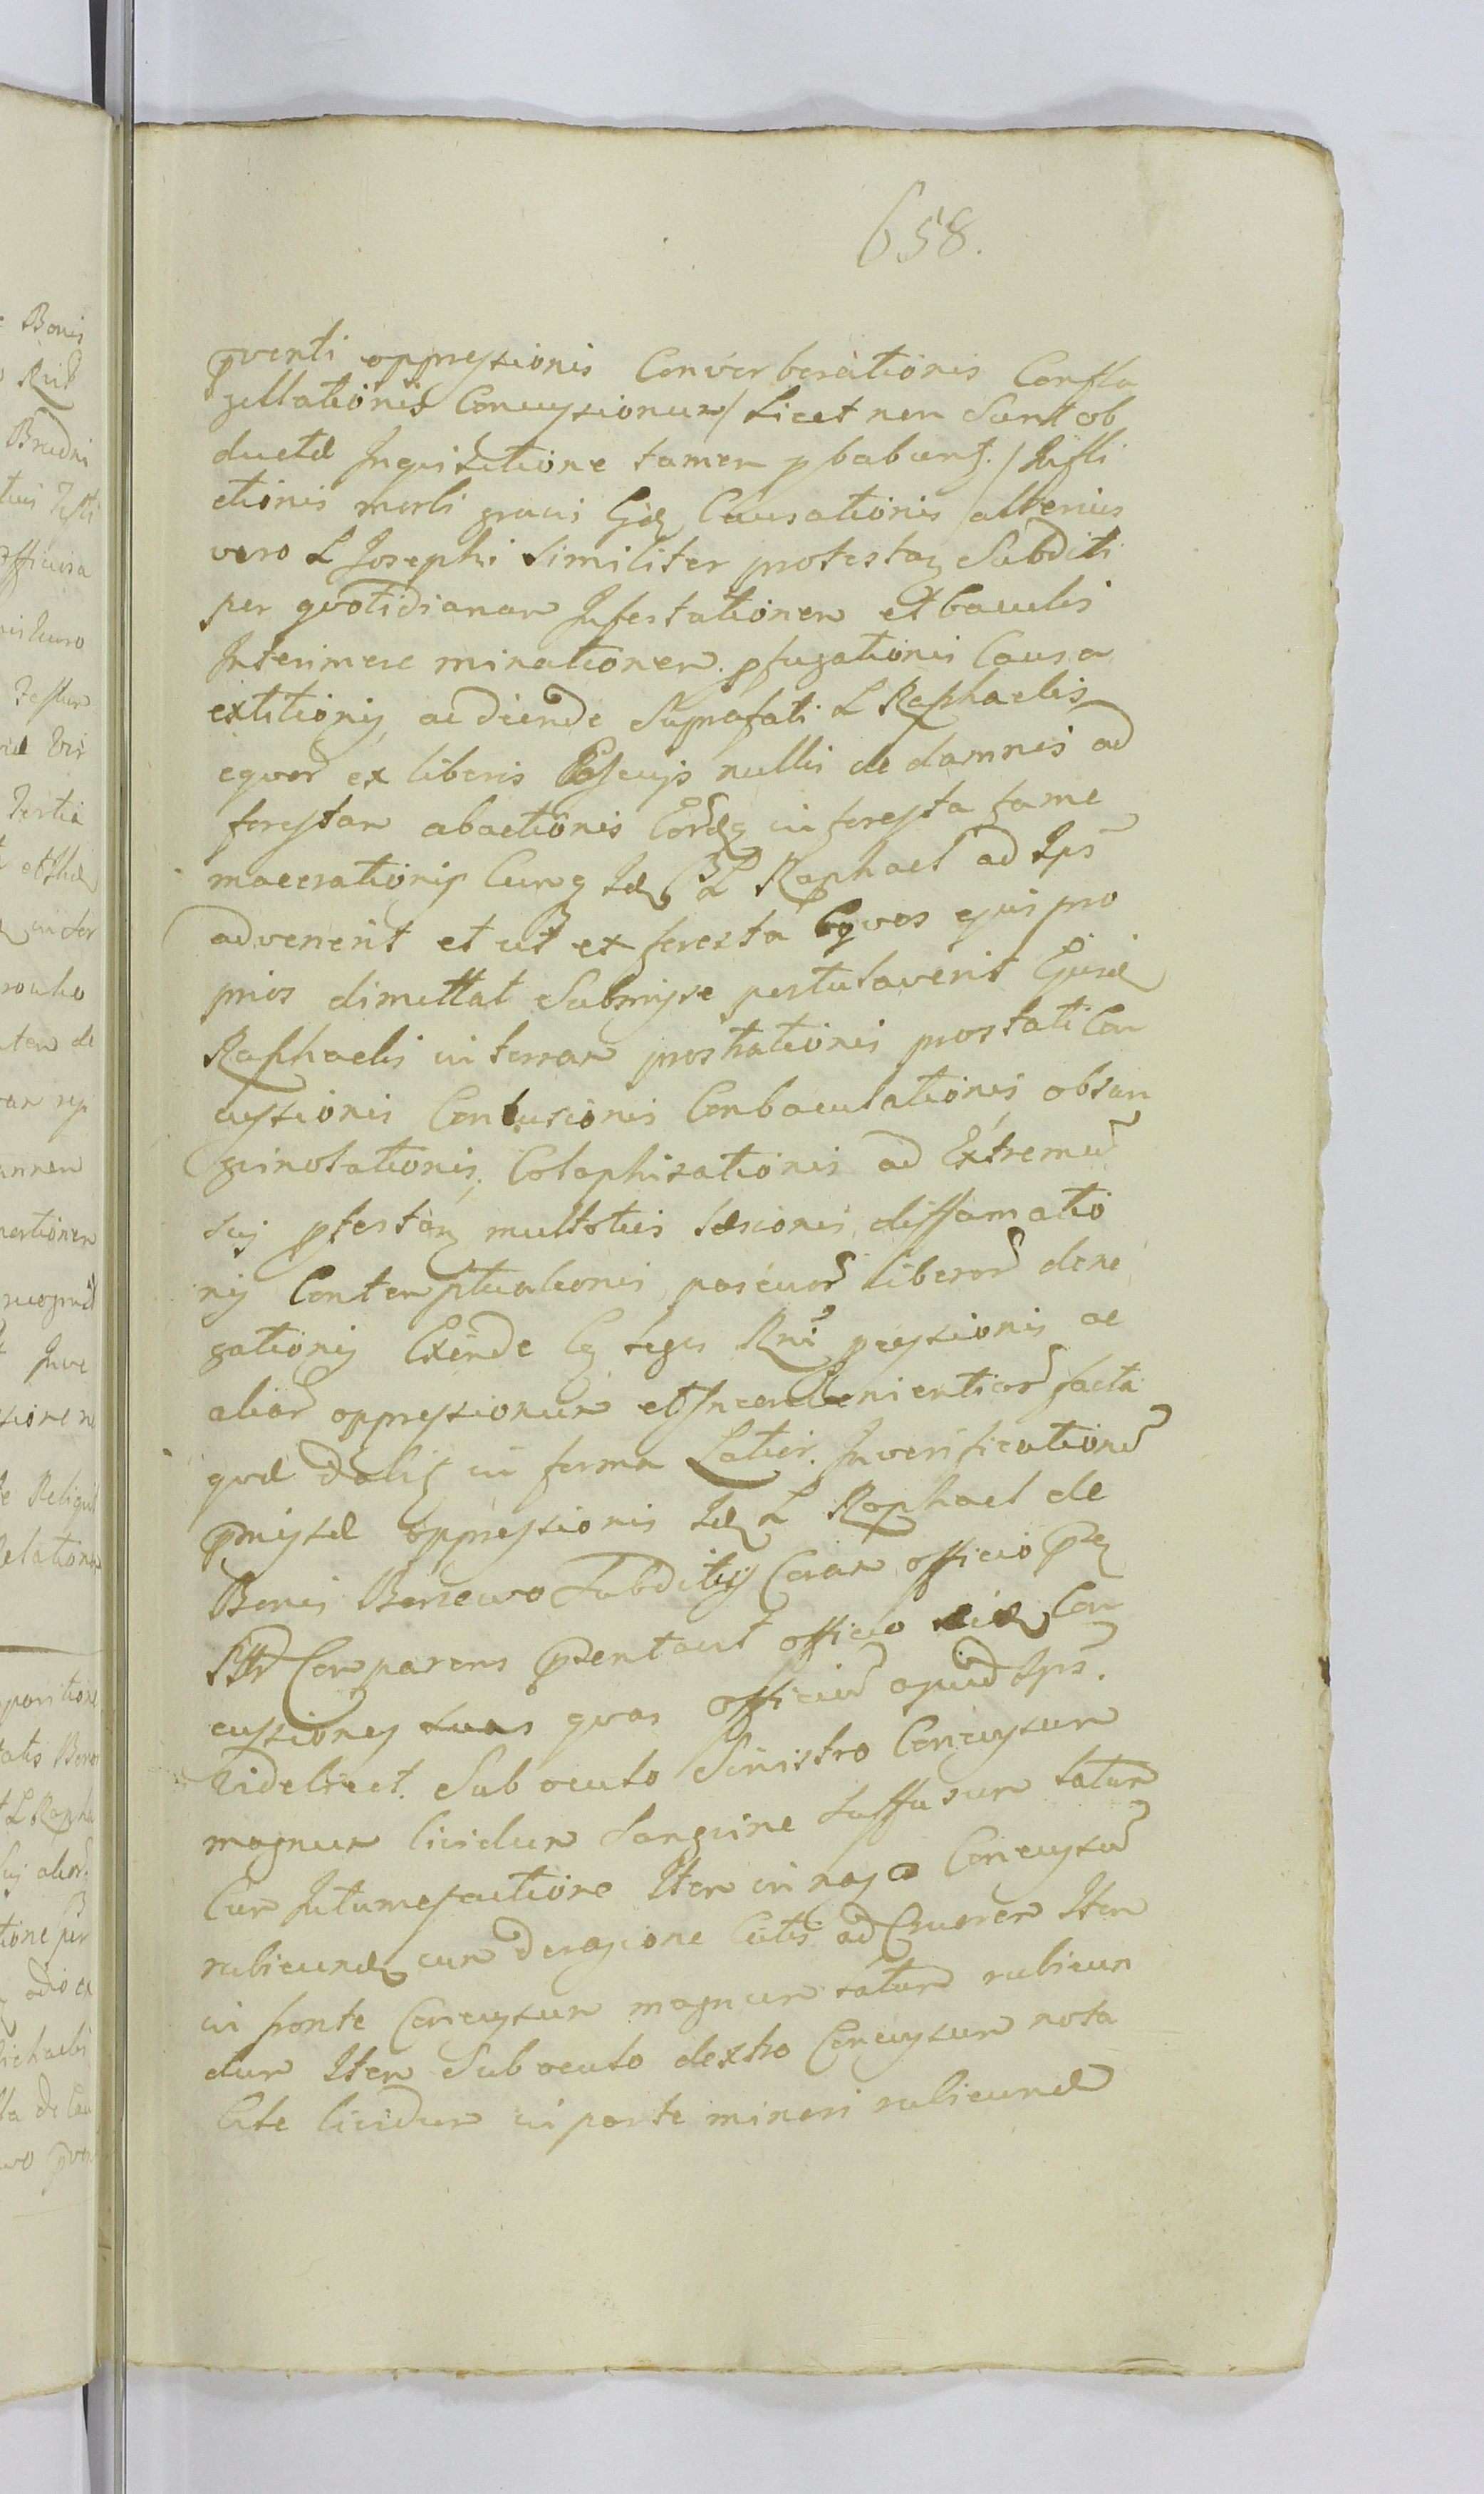 658.
pventi oppressionis Conver berationis Confla
gellationis Concussionum / Licet non Sunt ob
ductæ Inquisitione tamen pbabunt. / Infli
ctionis morbi gravis Causationis alterius
vero L Josephi Similiter protestan Subditi
per quotidianam Infestationem et baculis
Interimere minationem. pfugationis Causa
extitionis, ac deinde Suprafati L Raphaelis
equor ex liberis Pascuis nullis de damnis ad
forestam abactionis in foresta fame
macerationis L Raphael ad Ips
advenerit et ut ex foresta Equos ejus pro
prios dimittat Submisse postulaverit Ejusd
Raphaelis in terram prostrationis prostrati Con
cussionis Contusionis Conbaculationis, obsan
guinolationis, Colaphisationis ad Extremu
sui pfestan multotius læsionis, diffamatio
nis Contemptuationis pascuor liberor dene
gationis Exinde leges Rni ac
alior oppressionum et Inconvenientior facta
quæ in forma Latior. In verificatione
pmissæ oppressionis L Raphael de
Bonis Boniewo Subditus Coram officio
Comparens psentavit officio Con
cussiones suas quas officiu apud Ips.
Viddelicet. Sub oculo Sinistro Concussum
magnum lividum Sanguine Suffusum satum
Cum Intumefactione Item in naso Concussu
rubicund cum derasione Cutis ad Cruorem Item
in fronte Concussum magnum satum rubicun
dum Item Sub oculo dextro Concussum nota
bile lividum in parte minori rubicund